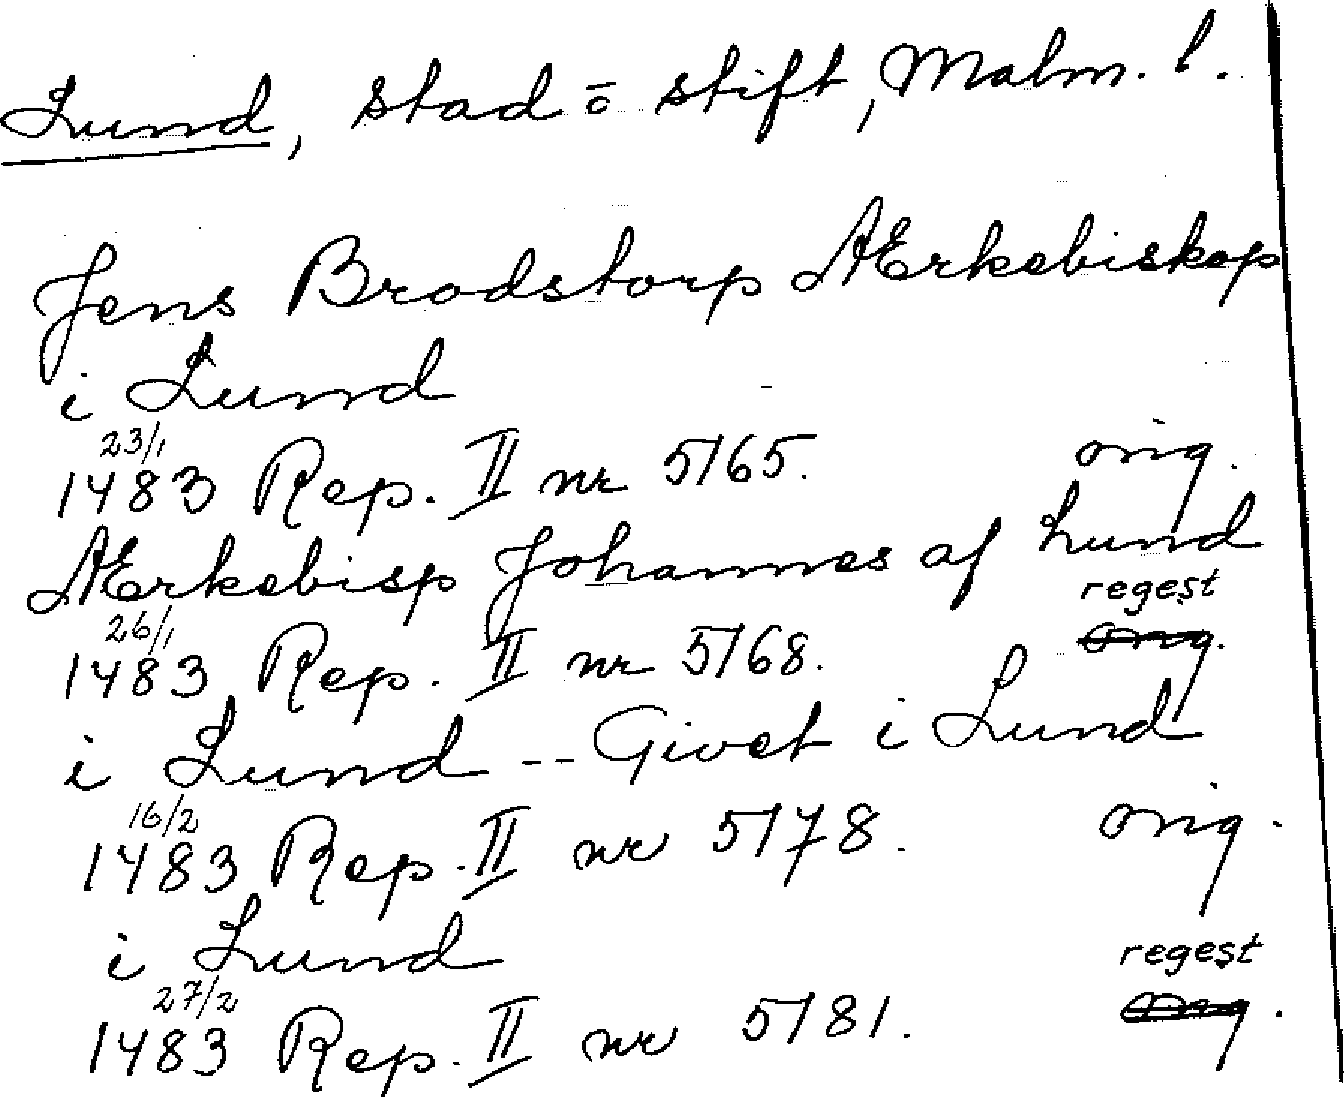 Lund, stad o stift, Malm. l.
Jens Brodstorp Ærkebiskop
i Lund
23/1
1483 Rep. II nr 5165. orig.
Ærkebisp Johannes af Lund
26/1 regest
1483 Rep. II nr 5168. orig.
i Lund -- Givet i Lund
16/2
1483 Rep. II nr 5178. orig.
i Lund
27/2 regest
1483 Rep. II nr 5181. orig.